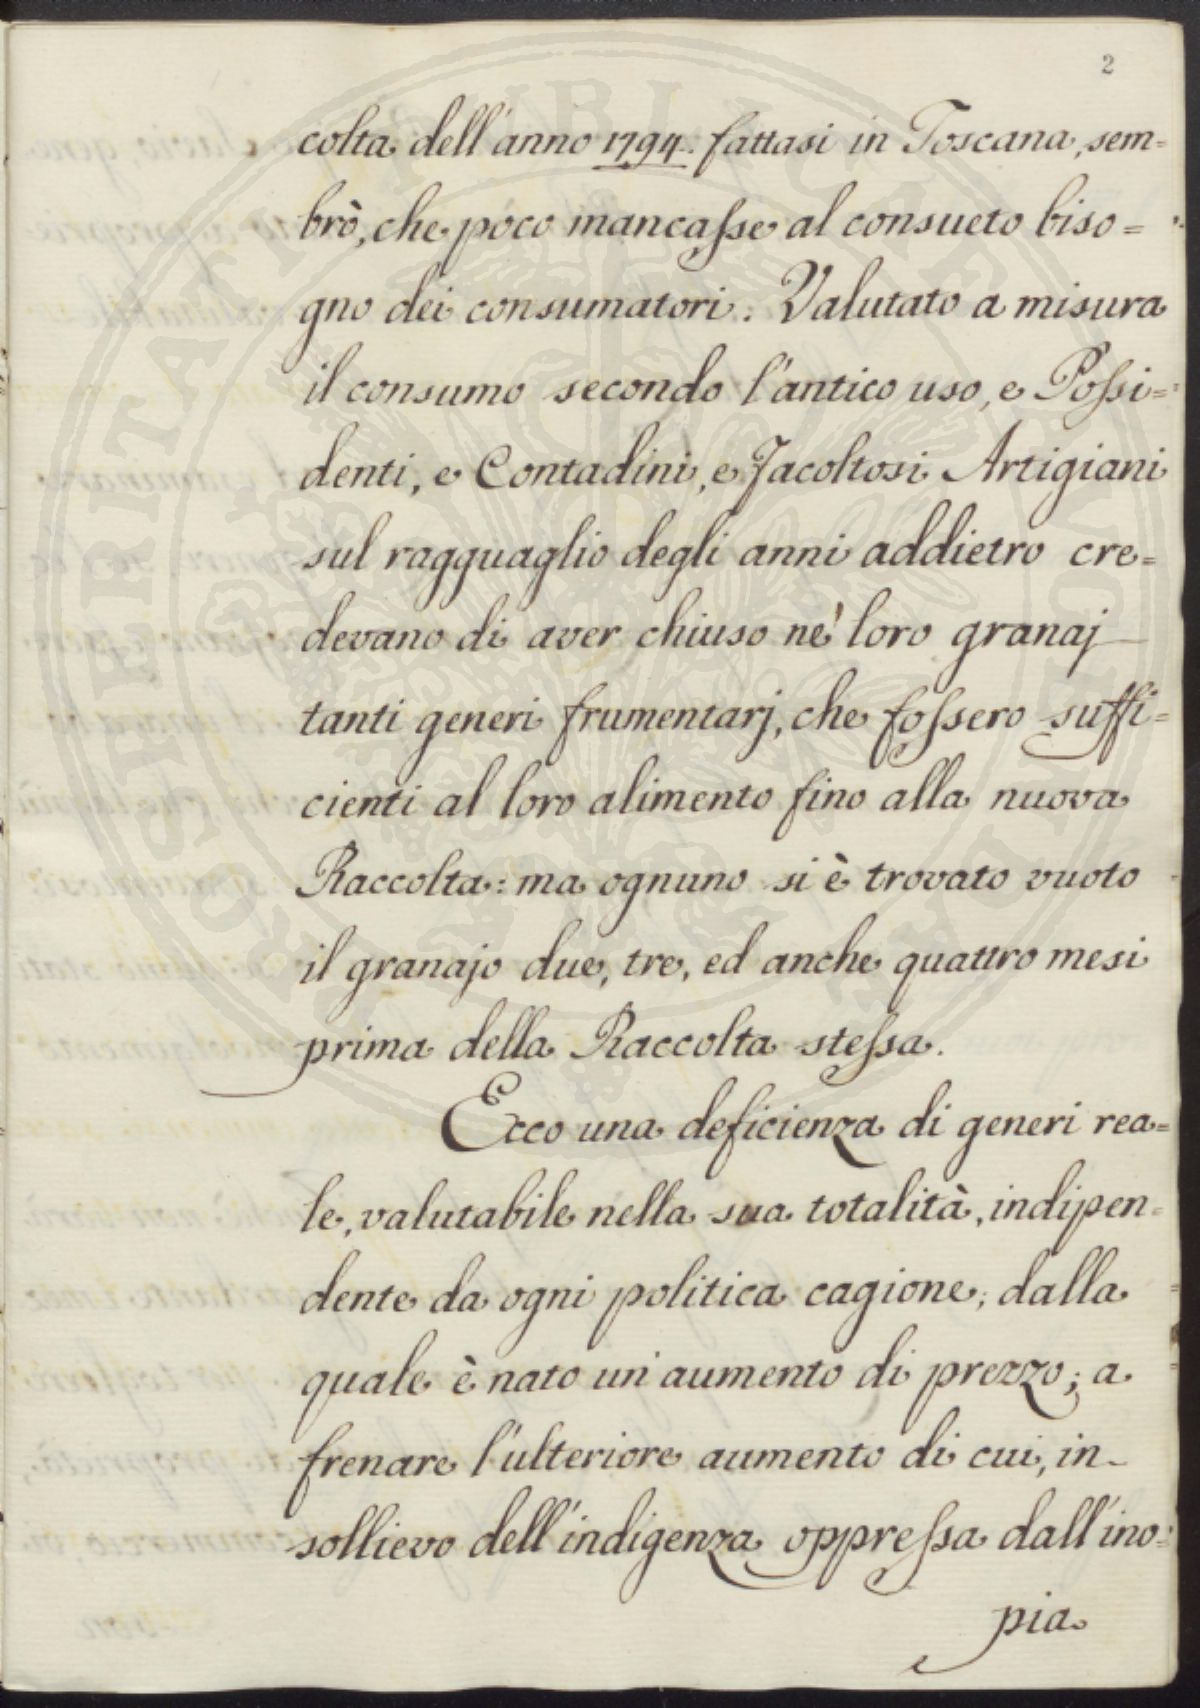 2
colta dell'anno 1794. fattasi in Toscana, sem=
brò, che poco mancaſse al consueto biso=
gno dei consumatori. Valutato a misura
il consumo secondo l'antico uso, e Poſsi=
denti, e Contadini, e Facoltosi Artigiani
sul ragguaglio degli anni addietro cre=
devano di aver chiuso ne' loro granaj
tanti generi frumentarj, che foſsero suffi=
cienti al loro alimento fino alla nuova
Raccolta: ma ognuno si è trovato vuoto
il granajo due, tre, ed anche quattro mesi
prima della Raccolta steſsa.
Ecco una deficienza di generi rea=
le, valutabile nella sua totalità, indipen=
dente da ogni politica cagione, dalla
quale è nato un'aumento di prezzo; a
frenare l'ulteriore aumento di cui, in
sollievo dell'indigenza oppreſsa dall'ino=
pia